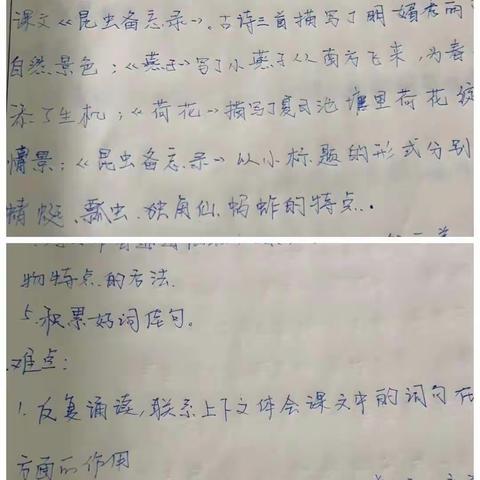 课文《昆虫备忘录》。古诗三首描写了明媚春雨
自然景色；《燕子》写了小燕子从南方飞来，为春
添了生机；《荷花》描写了夏日池塘里荷花绽
情景；《昆虫备忘录》以小标题的形式分别
蜻蜓、瓢虫、独角仙、蚂蚱的特点.
物特点的方法.
5.积累好词佳句。
难点：
1.反复诵读，联系上下文体会课文中的词句在
方面的作用